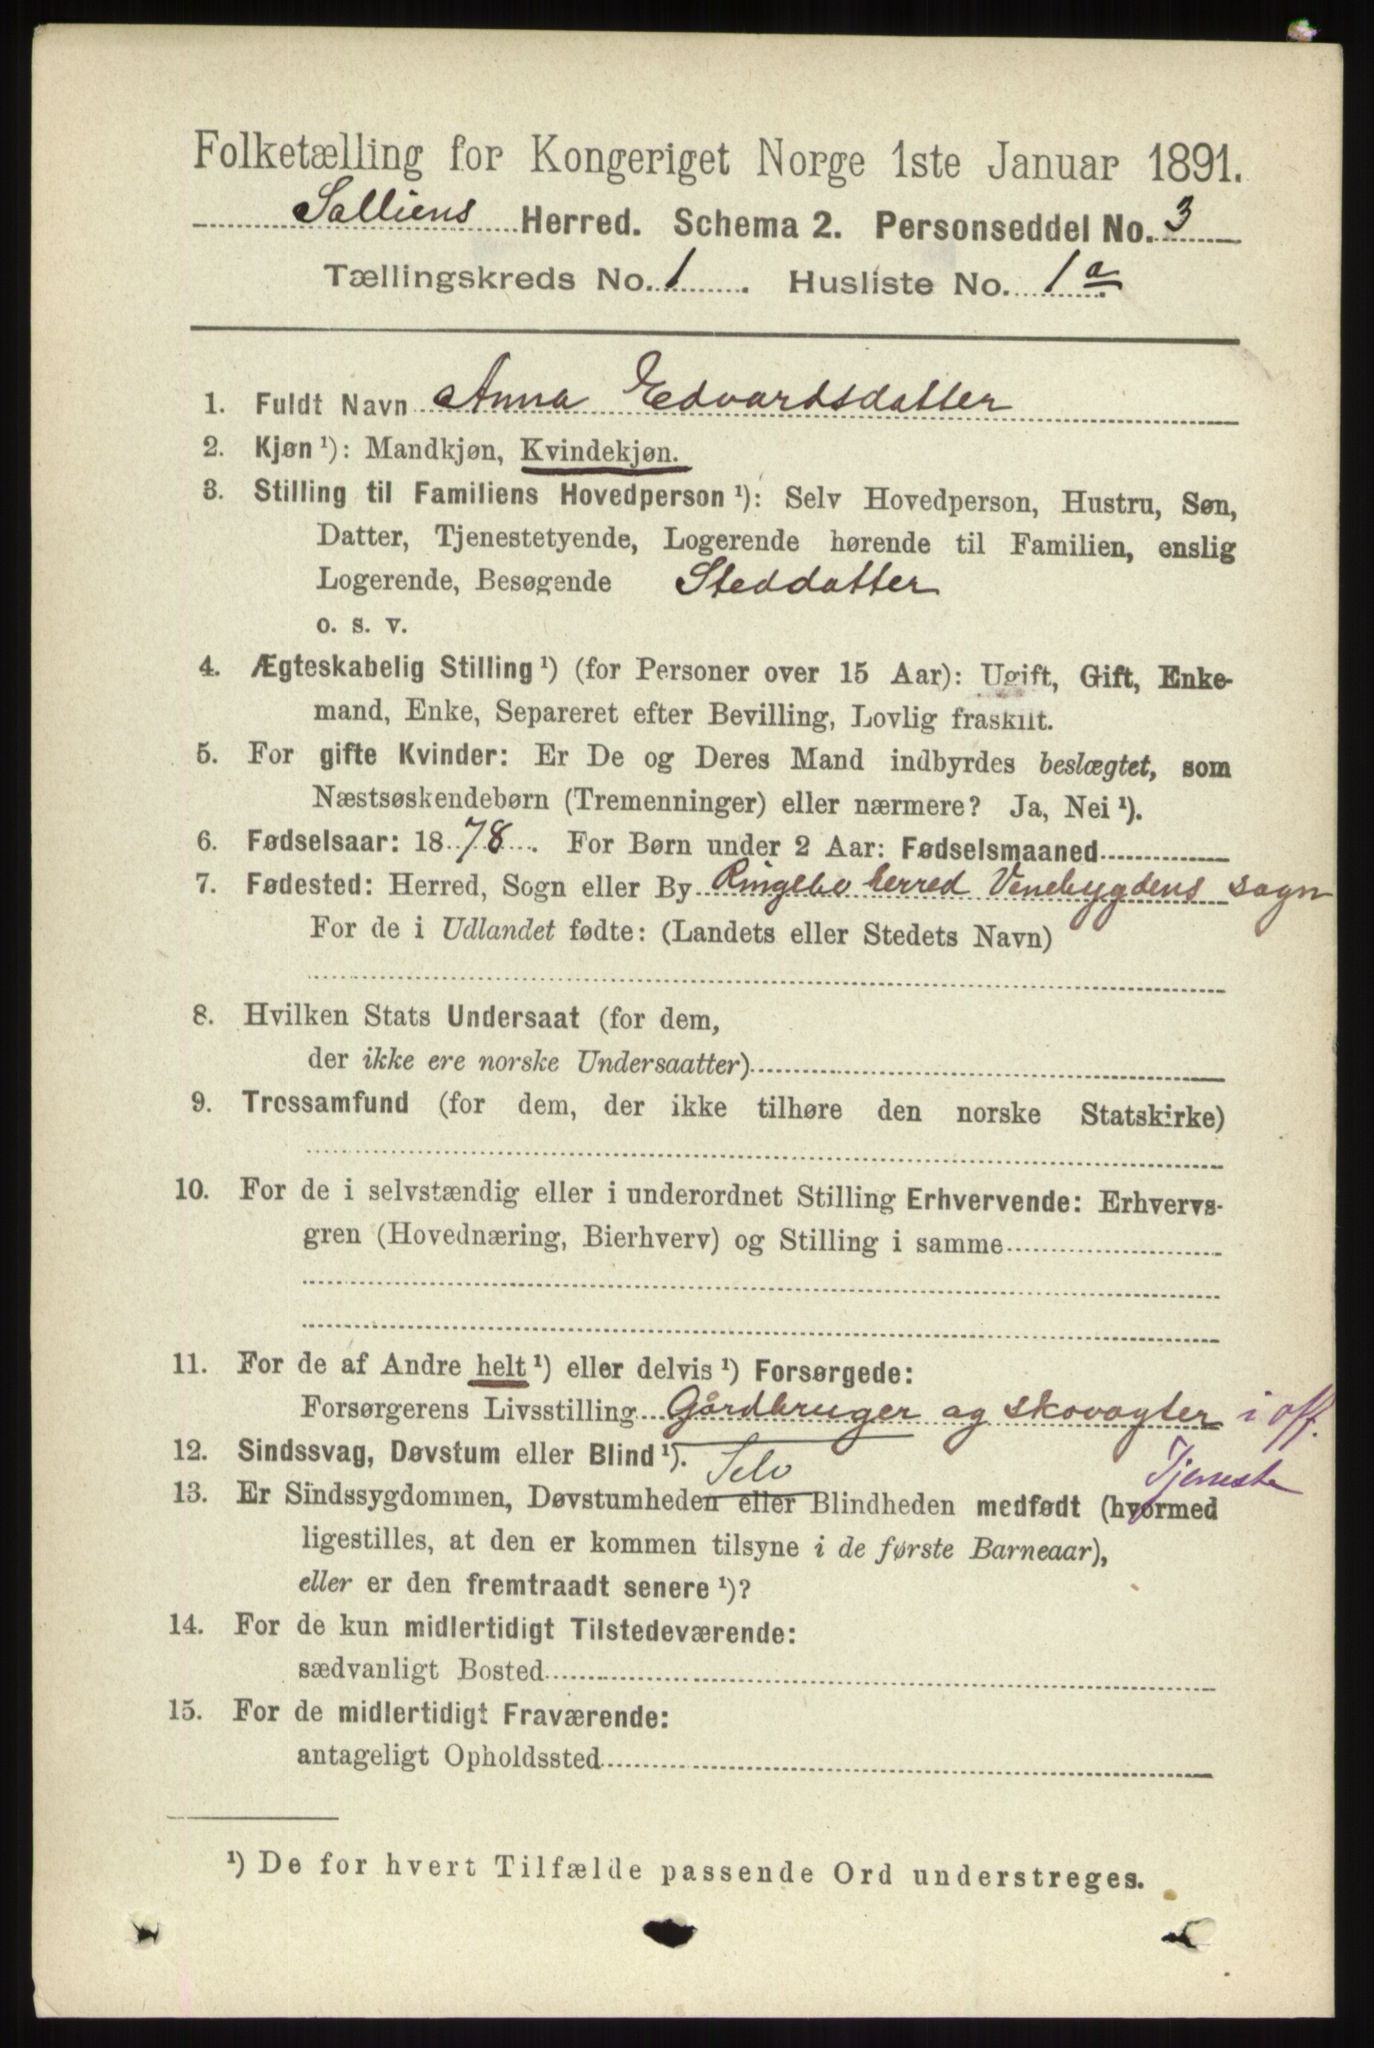 Folketælling for Kongeriget Norge 1ste Januar 1891.
Solliens Herred. Schema 2. Personseddel No. 3
Tællingskreds No. 1. Husliste No. 1 a
1. Fuldt Navn Anna Edvardsdatter
2. Kjøn ¹): Mandkjøn, Kvindekjøn.
3. Stilling til Familiens Hovedperson ¹): Selv Hovedperson, Hustru, Søn,
Datter, Tjenestetyende, Logerende hørende til Familien, enslig
Logerende, Besøgende Steddatter
o. s. v.
4. Ægteskabelig Stilling ¹) (for Personer over 15 Aar): Ugift, Gift, Enke-
mand, Enke, Separeret efter Bevilling, Lovlig fraskilt.
5. For gifte Kvinder: Er De og Deres Mand indbyrdes beslægtet, som
Næstsøskendebørn (Tremenninger) eller nærmere? Ja, Nei ¹).
6. Fødselsaar: 1878. For Børn under 2 Aar: Fødselsmaaned
7. Fødested: Herred, Sogn eller By Ringebo herred Venebygdens sogn
For de i Udlandet fødte: (Landets eller Stedets Navn)
8. Hvilken Stats Undersaat (for dem,
der ikke ere norske Undersaatter)
9. Trossamfund (for dem, der ikke tilhøre den norske Statskirke)
10. For de i selvstændig eller i underordnet Stilling Erhvervende: Erhvervs-
gren (Hovednæring, Bierhverv) og Stilling i samme
11. For de af Andre helt ¹) eller delvis ¹) Forsørgede:
Forsørgerens Livsstilling Gårdbruger og skovogter i off.
Tjeneste
12. Sindssvag, Døvstum eller Blind ¹). Selv
13. Er Sindssygdommen, Døvstumheden eller Blindheden medfødt (hvormed
ligestilles, at den er kommen tilsyne i de første Barneaar),
eller er den fremtraadt senere ¹)?
14. For de kun midlertidigt Tilstedeværende:
sædvanligt Bosted
15. For de midlertidigt Fraværende:
antageligt Opholdssted
¹) De for hvert Tilfælde passende Ord understreges.